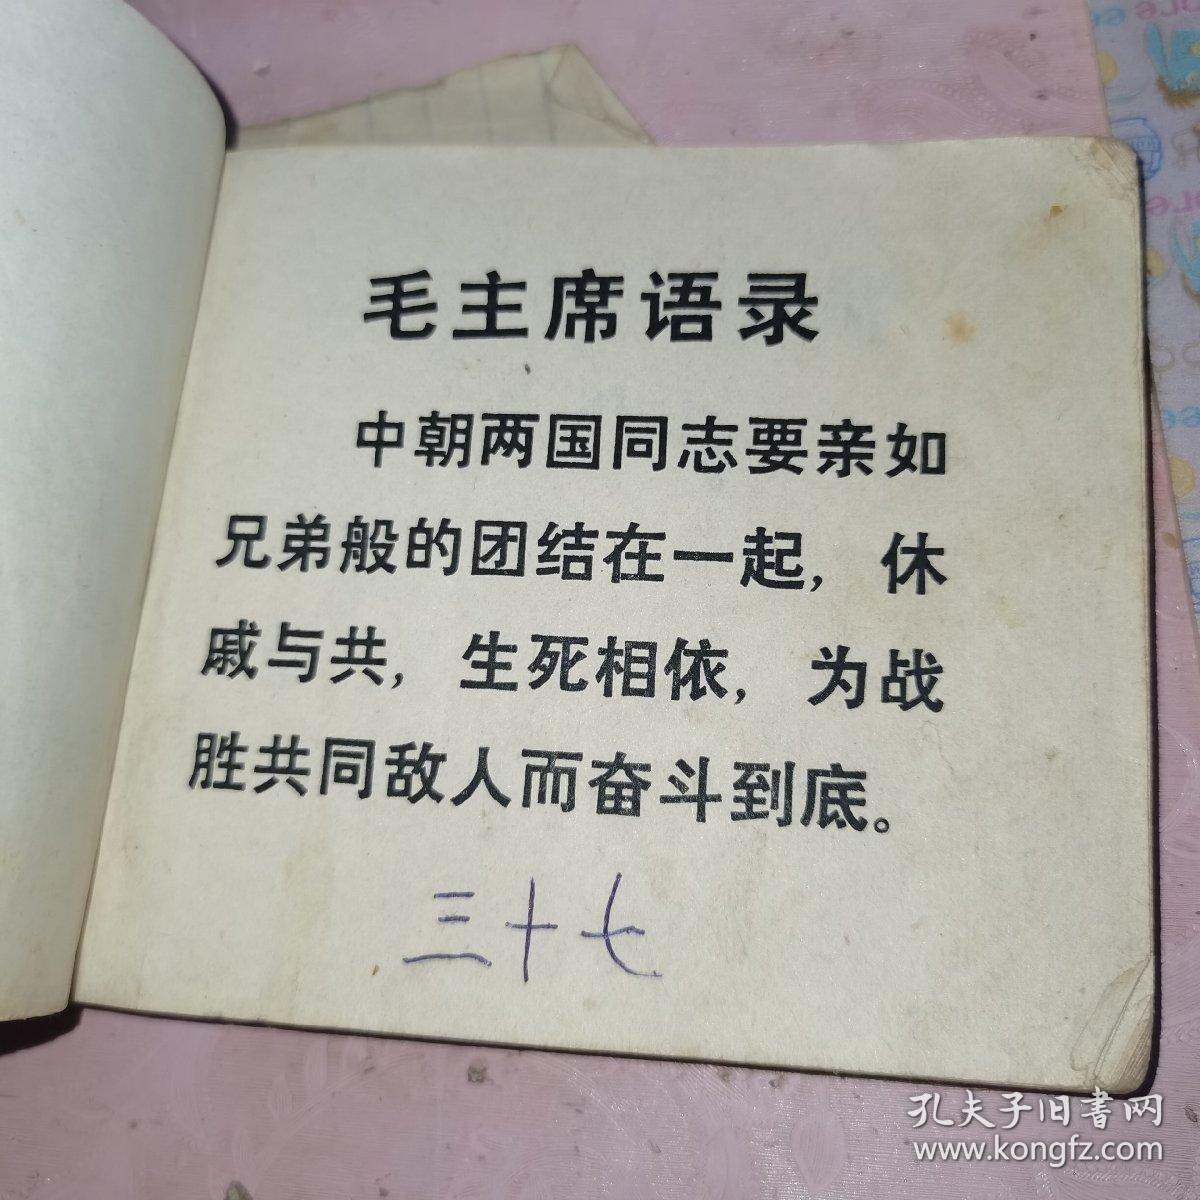 毛主席语录
中朝两国同志要亲如
兄弟般的团结在一起，休
戚与共，生死相依，为战
胜共同敌人而奋斗到底。
三十七
孔夫子旧书网
www.kongfz.com